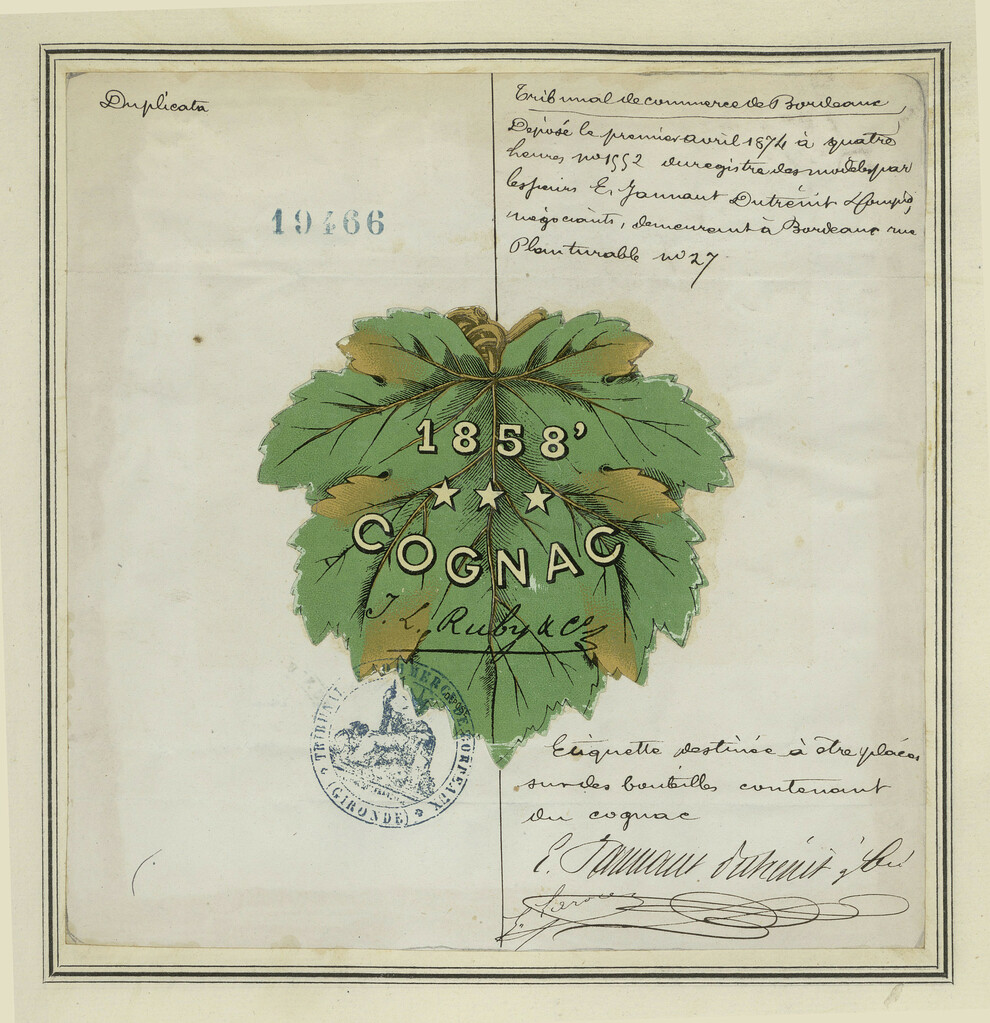 Duplicata
Tribunal de commerce de Bordeaux
Déposé le premier avril 1874 à quatre
heures no 1552 du registre des modèles par
les sieurs E. Jannaut Dutrénit & Comp.,
négociants, demeurant à Bordeaux rue
Planturable no 27
19466
1858'
COGNAC
J. L. Ruby & Co
TRIBUNAL DE COMMERCE DE BORDEAUX
(GIRONDE)
Etiquette destinée à être placée
sur des bouteilles contenant
du cognac
E. Jannaut Dutrénit & Cie